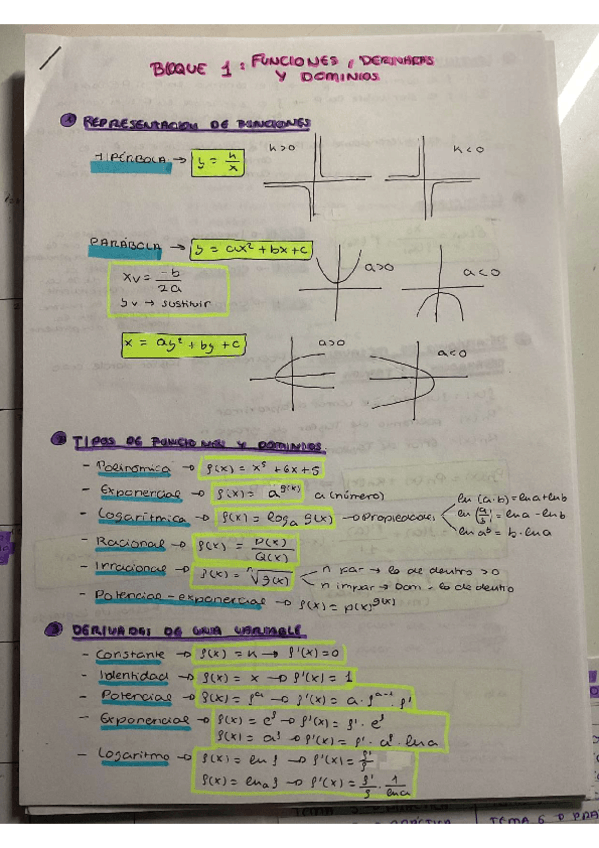 BLOQUE 1: FUNCIONES, DERIVADAS
Y DOMINIOS
1 REPRESENTACIÓN DE FUNCIONES
HIPÉRBOLA → y = k/x
k>0
k<0
PARÁBOLA → y = ax² + bx + c
a>0
a<0
xv = -b/2a
yv → sustituir
x = ay² + by + c
a>0
a<0
2 TIPOS DE FUNCIONES Y DOMINIOS
- Polinómica → f(x) = x⁵ + 6x + 5
- Exponencial → f(x) = a^g(x) a (número)
- Logarítmica → f(x) = logₐ g(x) → Propiedades
ln (a·b) = ln a + ln b
ln (a/b) = ln a - ln b
ln aᵇ = b · ln a
- Racional → f(x) = P(x)/Q(x)
- Irracional → f(x) = ⁿ√g(x)
n par → lo de dentro > 0
n impar → Dom - lo de dentro
- Potencial-exponencial → f(x) = p(x)^g(x)
3 DERIVADAS DE UNA VARIABLE
- Constante → f(x) = k → f'(x) = 0
- Identidad → f(x) = x → f'(x) = 1
- Potencial → f(x) = fᵃ → f'(x) = a · fᵃ⁻¹ · f'
- Exponencial → f(x) = eᶠ → f'(x) = f' · eᶠ
f(x) = aᶠ → f'(x) = f' · aᶠ · ln a
- Logaritmo → f(x) = ln f → f'(x) = f'/f
f(x) = lnₐ f → f'(x) = f'/f · 1/ln a